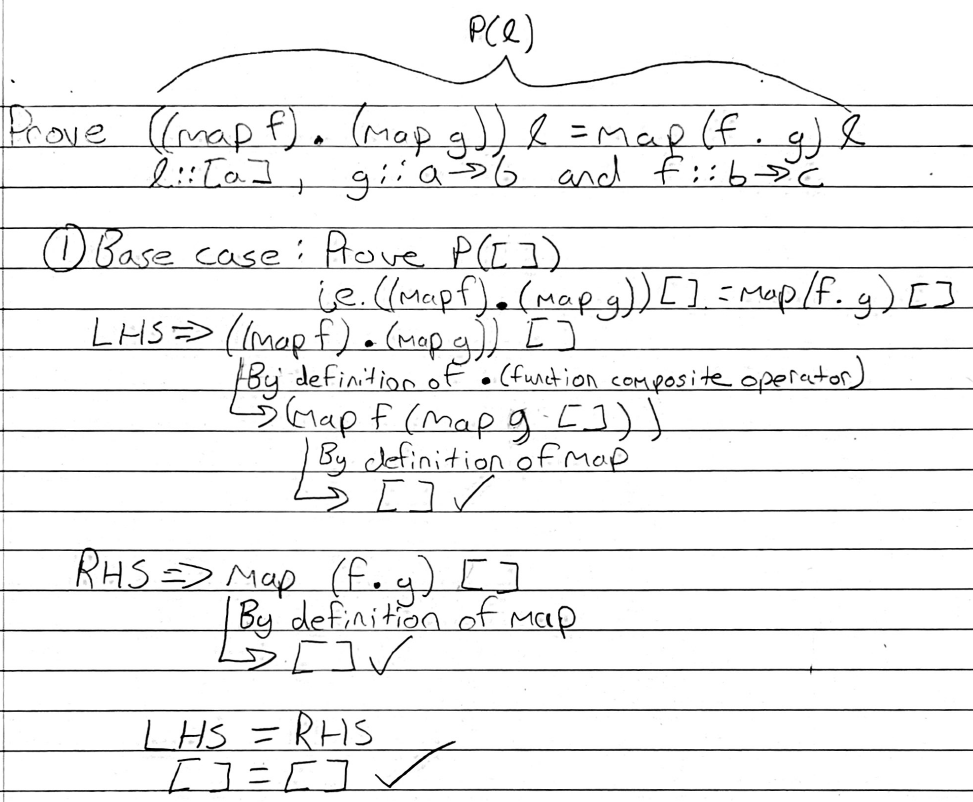 P(l)
Prove ((map f) . (map g)) l = map (f . g) l
l::[a], g::a→b and f::b→c
① Base case: Prove P([])
i.e. ((map f) . (map g)) [] = map (f. g) []
LHS ⇒ ((map f) . (map g)) []
By definition of . (function composite operator)
↳ (map f (map g []))
By definition of map
↳ [] ✓
RHS ⇒ Map (f. g) []
By definition of map
↳ [] ✓
LHS = RHS
[] ≡ [] ✓